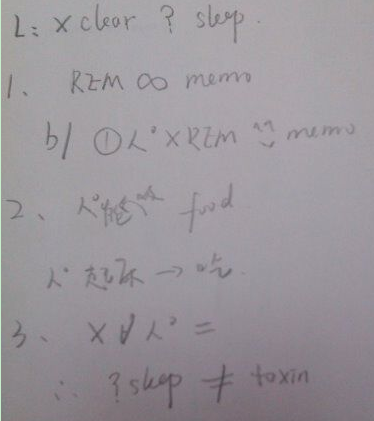 L: × clear ? sleep.
1. REM ∞ memo
b/ ①人° × REM memo
2、人° food
人° 起床 → 吃.
3、 × ∀ 人° =
∴ ? sleep ≠ toxin